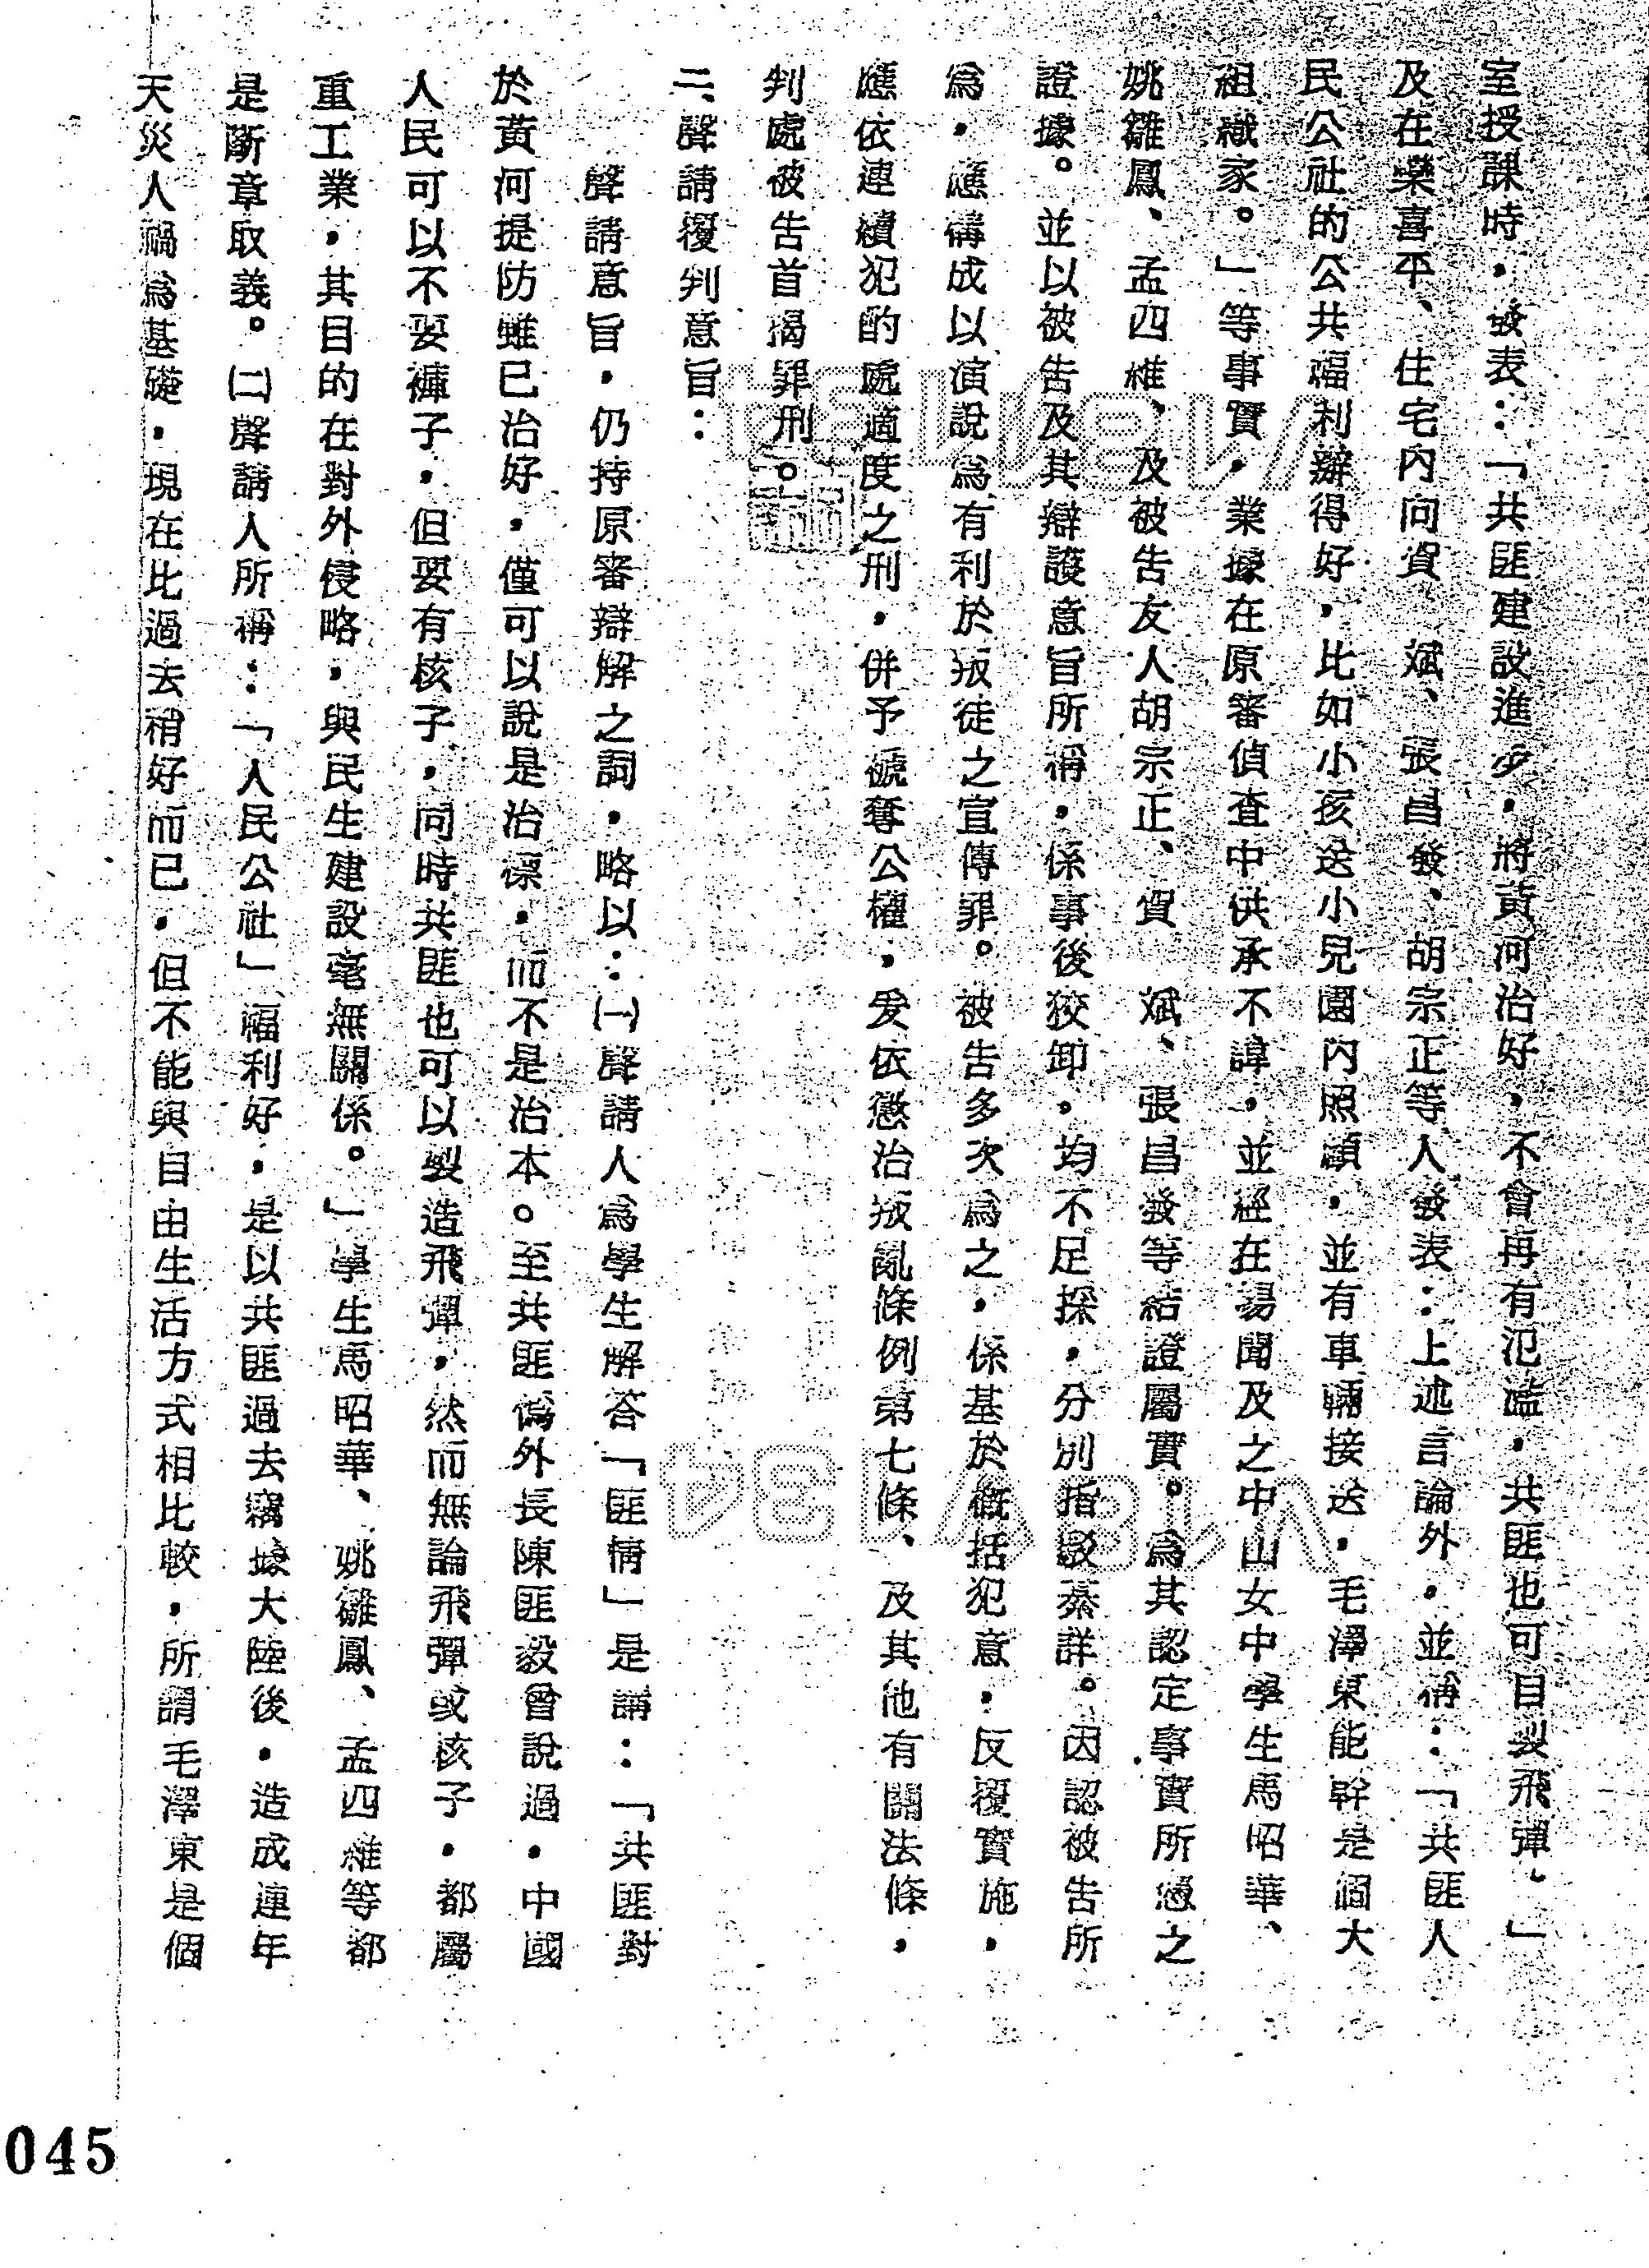 室授課時，發表：「共匪建設進步，將黃河治好，不會再有氾濫，共匪也可目製飛彈。」
及在欒喜平、住宅內向賀　斌、張昌發、胡宗正等人發表：上述言論外，並稱：「共匪人
民公社的公共福利辦得好，比如小孩送小兒園內照顧，並有車輛接送，毛澤東能幹是個大
組織家。」等事實，業據在原審偵查中供承不諱，並經在場聞及之中山女中學生馬昭華、
姚雛鳳、孟四維、及被告友人胡宗正、賀　斌、張昌發等結證屬實。為其認定事實所憑之
證據。並以被告及其辯護意旨所稱，係事後狡卸，均不足採，分別指駁綦詳。因認被告所
為，應構成以演說為有利於叛徒之宣傳罪。被告多次為之，係基於概括犯意，反覆實施，
應依連續犯酌處適度之刑，併予褫奪公權，爰依懲治叛亂條例第七條、及其他有關法條，
判處被告首揭罪刑。
二、聲請覆判意旨：
聲請意旨，仍持原審辯解之詞，略以：㈠聲請人為學生解答「匪情」是講：「共匪對
於黃河提防雖已治好，僅可以說是治標，而不是治本。至共匪偽外長陳匪毅曾說過，中國
人民可以不要褲子，但要有核子，同時共匪也可以製造飛彈，然而無論飛彈或核子，都屬
重工業，其目的在對外侵略，與民生建設毫無關係。」學生馬昭華、姚雛鳳、孟四維等都
是斷章取義。㈡聲請人所稱：「人民公社」福利好，是以共匪過去竊據大陸後，造成連年
天災人禍為基礎，現在比過去稍好而已，但不能與自由生活方式相比較，所謂毛澤東是個
045